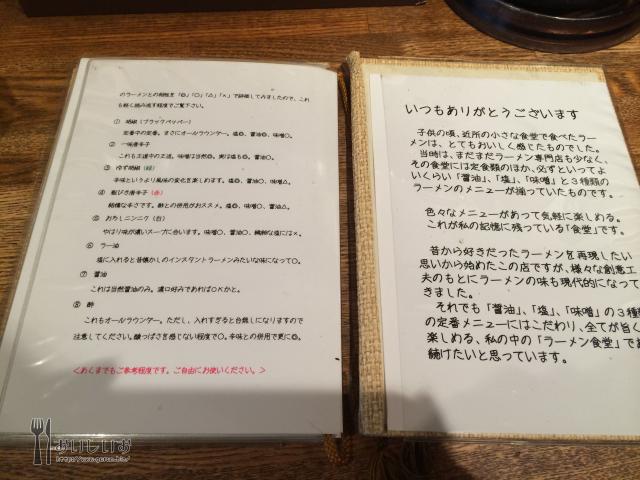 のラーメンとの相性を「◎」「○」「△」「×」で評価してみましたので、これ
も軽く読み流す程度でご覧下さい。
① 胡椒（ブラックペッパー）
定番中の定番。まさにオールラウンダー。塩◎、醤油◎、味噌○。
② 一味唐辛子
これも王道中の王道。味噌は当然◎。実は塩も◎。醤油○。
③ ゆず胡椒（緑）
辛味というより風味の変化を楽しめます。塩◎、醤油○、味噌△。
④ 粗びき唐辛子（赤）
結構な辛さです。酢との併用がおススメ。塩◎、味噌◎、醤油△。
⑤ おろしニンニク（白）
やはり味が濃いスープに合います。味噌◎、醤油○、繊細な塩には×。
⑥ ラー油
塩に入れると昔懐かしのインスタントラーメンみたいな味になって○。
⑦ 醤油
これは当然醤油のみ。濃口好みであればOKかと。
⑧ 酢
これもオールラウンダー。ただし、入れすぎると台無しになりますので
注意してください。酸っぱさを感じない程度で○。辛味との併用で更に◎。
＜あくまでもご参考程度です。ご自由にお使いください。＞
いつもありがとうございます
子供の頃、近所の小さな食堂で食べたラー
メンは、とてもおいしく感じたものでした。
当時は、まだまだラーメン専門店も少なく、
その食堂には定食類のほか、必ずといってよ
いくらい「醤油」、「塩」、「味噌」と３種類の
ラーメンのメニューが揃っていたものです。
色々なメニューがあって気軽に楽しめる。
これが私の記憶に残っている「食堂」です。
昔から好きだったラーメンを再現したい
思いから始めたこの店ですが、様々な創意工
夫のもとにラーメンの味も現代的になって
きました。
それでも「醤油」、「塩」、「味噌」の３種類
の定番メニューにはこだわり、全てが旨く
楽しめる、私の中の「ラーメン食堂」であ
続けたいと思っています。
おいしいお